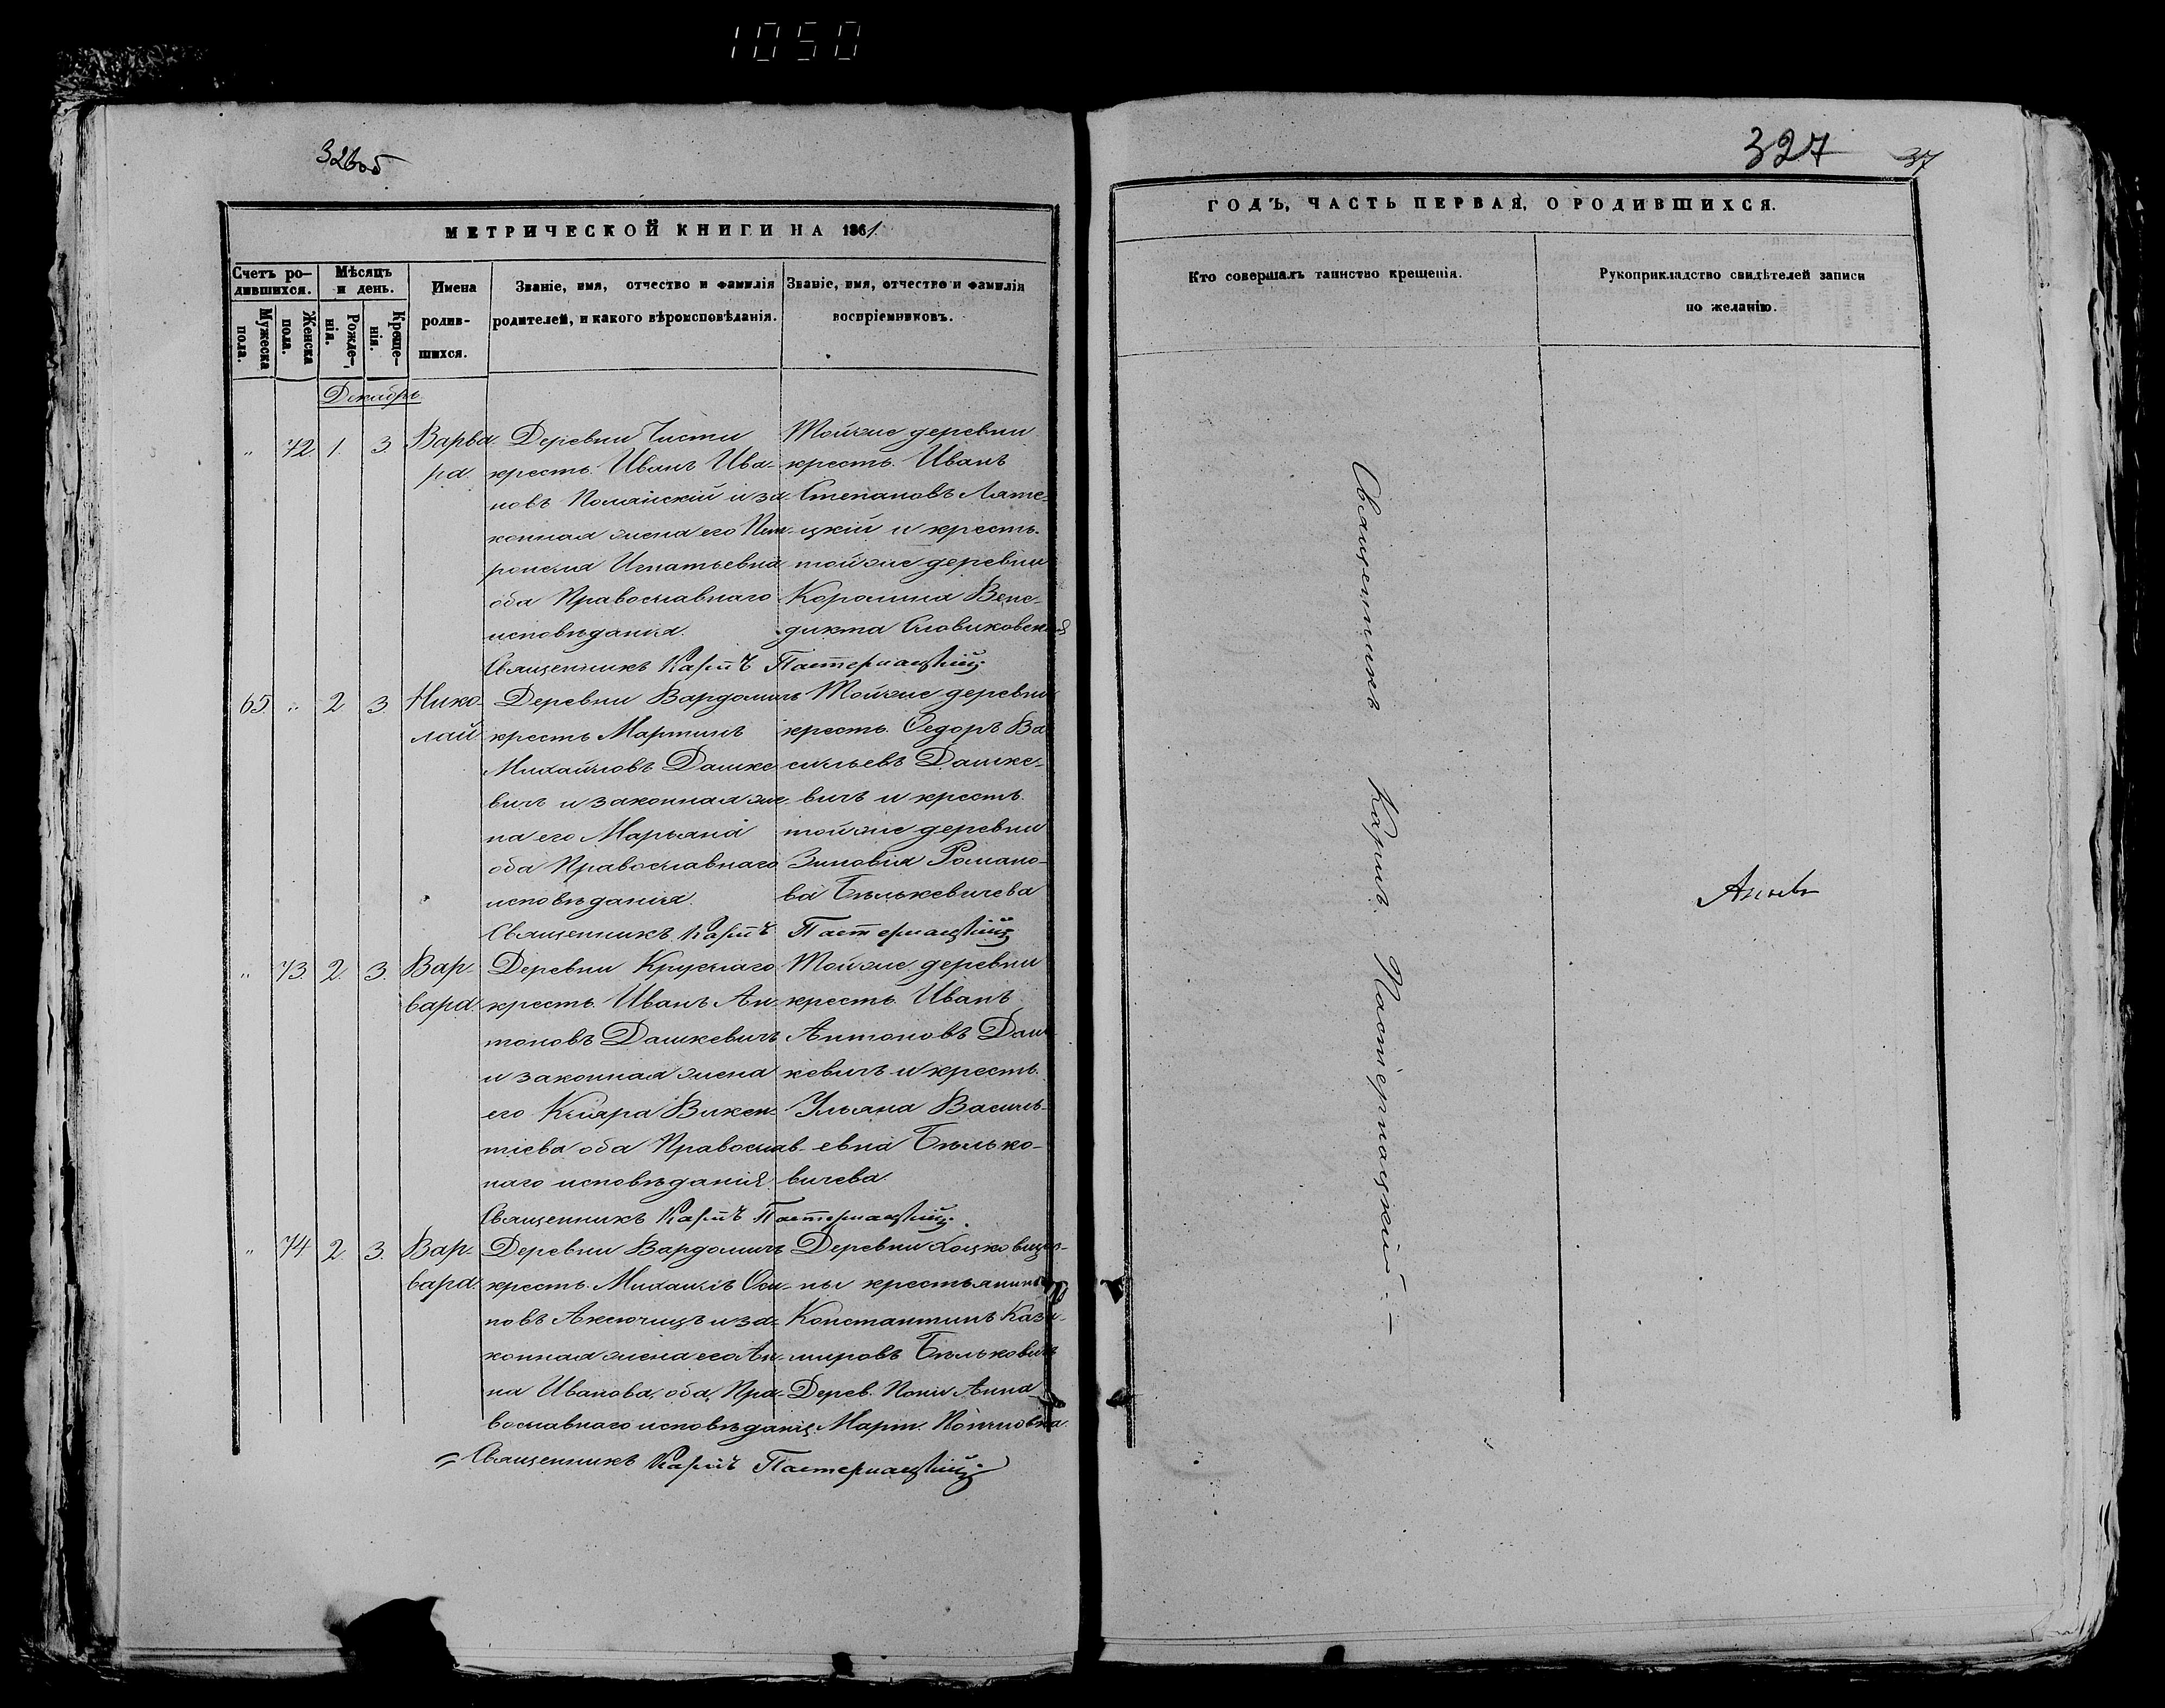 1050
326об
МЕТРИЧЕСКОЙ КНИГИ НА 1861
Счетъ ро-
дившихся.
Мужеска
пола.
Женска
пола.
Мѣсяцъ
и день.
Рожде-
нія.
Креще-
нія.
Имена
родив-
шихся.
Званіе, имя, отчество и фамилія
родителей, и какого вѣроисповѣданія.
Званіе, имя, отчество и фамилія
воспріемниковъ.
Декабрь
" 72. 1. 3. Варва-
ра.
Деревни Чисти
кресть. Иванъ Ива-
новъ Поманскій и за-
конная жена его Пет-
ронеля Игнатьевна
оба Православнаго
исповѣданія.
Тойже деревни
кресть. Иванъ
Степановъ Ляте-
цкій и кресть.
тойже деревни
Королина Вене-
дикта Словиковская
Священникъ Карпъ Пастернацкій
65. " 2 3. Нико-
лай
Деревни Вардомичъ
кресть Мартинъ
Михайловъ Дашке-
вичъ и законная же-
на его Марьяна
оба Православнаго
исповѣданія.
Тойже деревни
кресть. Ѳедоръ Ва-
сильевъ Дашке-
вичъ и кресть.
тойже деревни
Зиновія Романо-
ва Бѣлькевичева
Священникъ Карпъ Пастернацкій
" 73. 2. 3. Вар-
вара.
Деревни Круглаго
кресть. Иванъ Ан-
тоновъ Дашкевичъ
и законная жена
его Кляра Викен-
тіева оба Православ-
наго исповѣданія.
Тойже деревни
кресть. Иванъ
Антоновъ Даш-
кевичъ и кресть.
Ульяна Василь-
евна Бѣлько-
вичева
Священникъ Карпъ Пастернацкій
" 74 2. 3. Вар-
вара.
Деревни Вардомичъ
кресть. Михаилъ Оси-
повъ Аксючицъ и за-
конная жена его Ан-
на Иванова, оба Пра-
вославнаго исповѣданія.
Деревни Хоцковищи-
ны крестьянинъ
Константинъ Кази-
мировъ Бѣльковичъ
Дерев. Анна
Март.
Священникъ Карпъ Пастернацкій
327
37
ГОДЪ, ЧАСТЬ ПЕРВАЯ, О РОДИВШИХСЯ.
Кто совершалъ таинство крещенія.
Рукоприкладство свидѣтелей записи
по желанію.
Священникъ Карпъ Пастернацкій. —